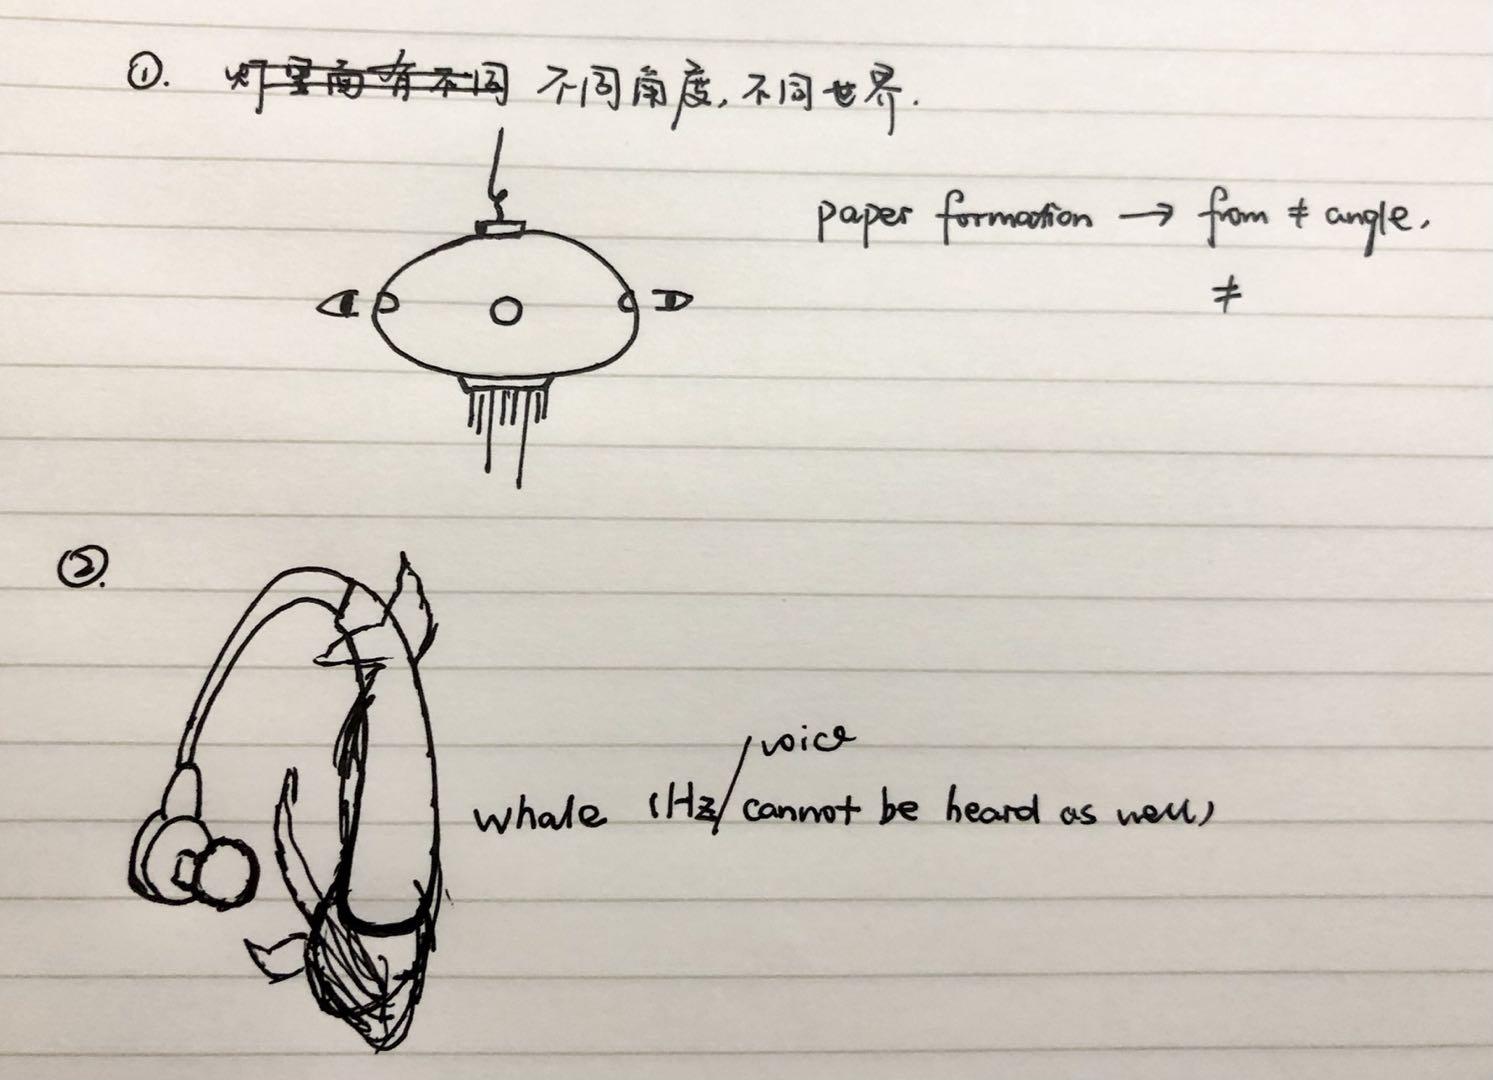 ①. 灯里面有不同 不同角度, 不同世界.
paper formation → from ≠ angle.
≠
②.
voice
whale (Hz/ cannot be heard as well)